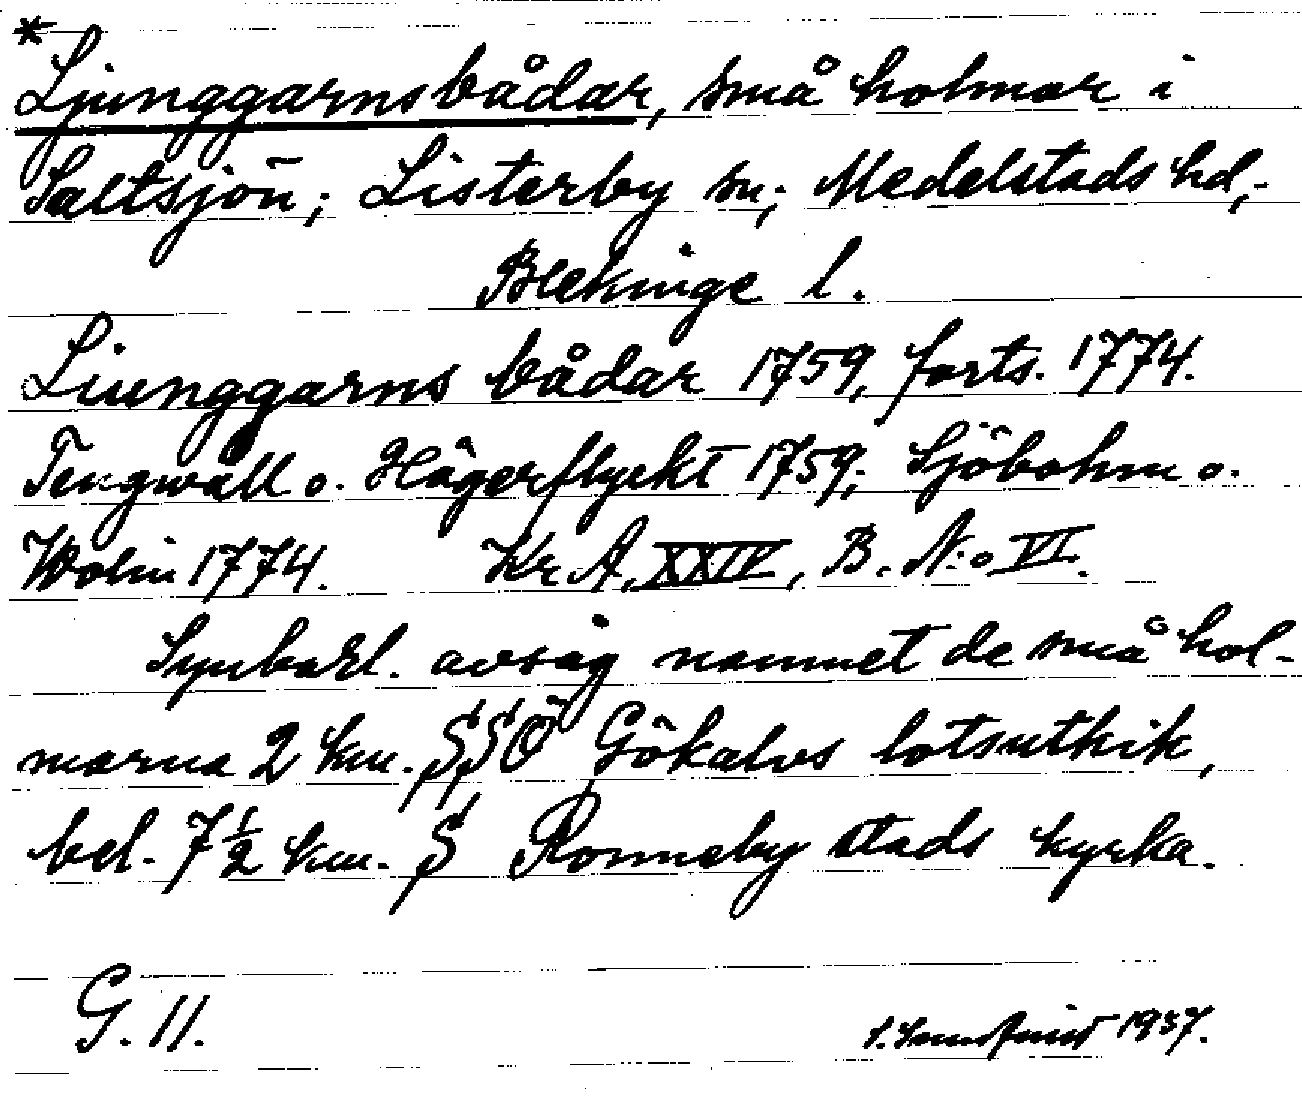 *
Ljunggarnsbådar, små holmar i
Saltsjön; Listerby sn; Medelstads hd,
Blekinge l.
Liunggarns bådar 1759, forts. 1774.
Tengwall o. Hägerflyckt 1759; Sjöbohm o.
Wolin 1774. Kr. A. XXIV, B. N:o VI.
Synbarl. avsåg namnet de små hol-
marna 2 km. SSÖ Gökalvs lotsutkik,
bel. 7 1/2 km. S Ronneby stads kyrka.
G. 11.
1937.